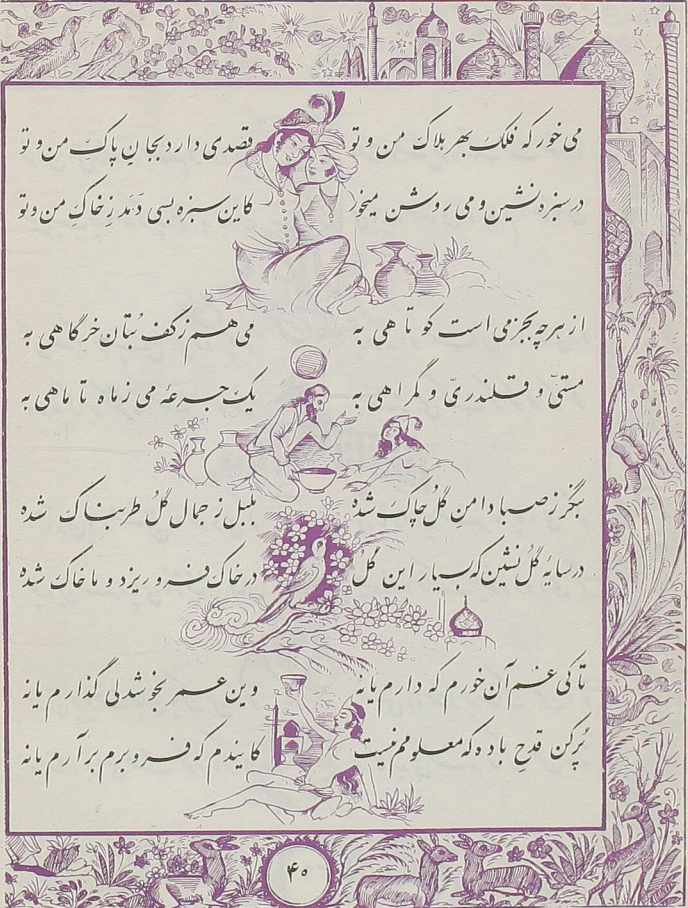 می خور که فلک بهر هلاک من و تو قصدی دارد بجان پاک من و تو
در سبزه نشین و می روشن میخور کاین سبزه بسی دمد ز خاک من و تو
از هرچه بجز می است کوتاهی به می هم ز کف بتان خرگاهی به
مستی و قلندری و گمراهی به یک جرعهٔ می ز ماه تا ماهی به
بنگر ز صبا دامن گل چاک شده بلبل ز جمال گل طربناک شده
در سایهٔ گل نشین که بسیار این گل در خاک فرو ریزد و ما خاک شده
تا کی غم آن خورم که دارم یا نه وین عمر بخوشدلی گذارم یا نه
پرکن قدح باده که معلومم نیست کایندم که فرو برم برآرم یا نه
۴۰